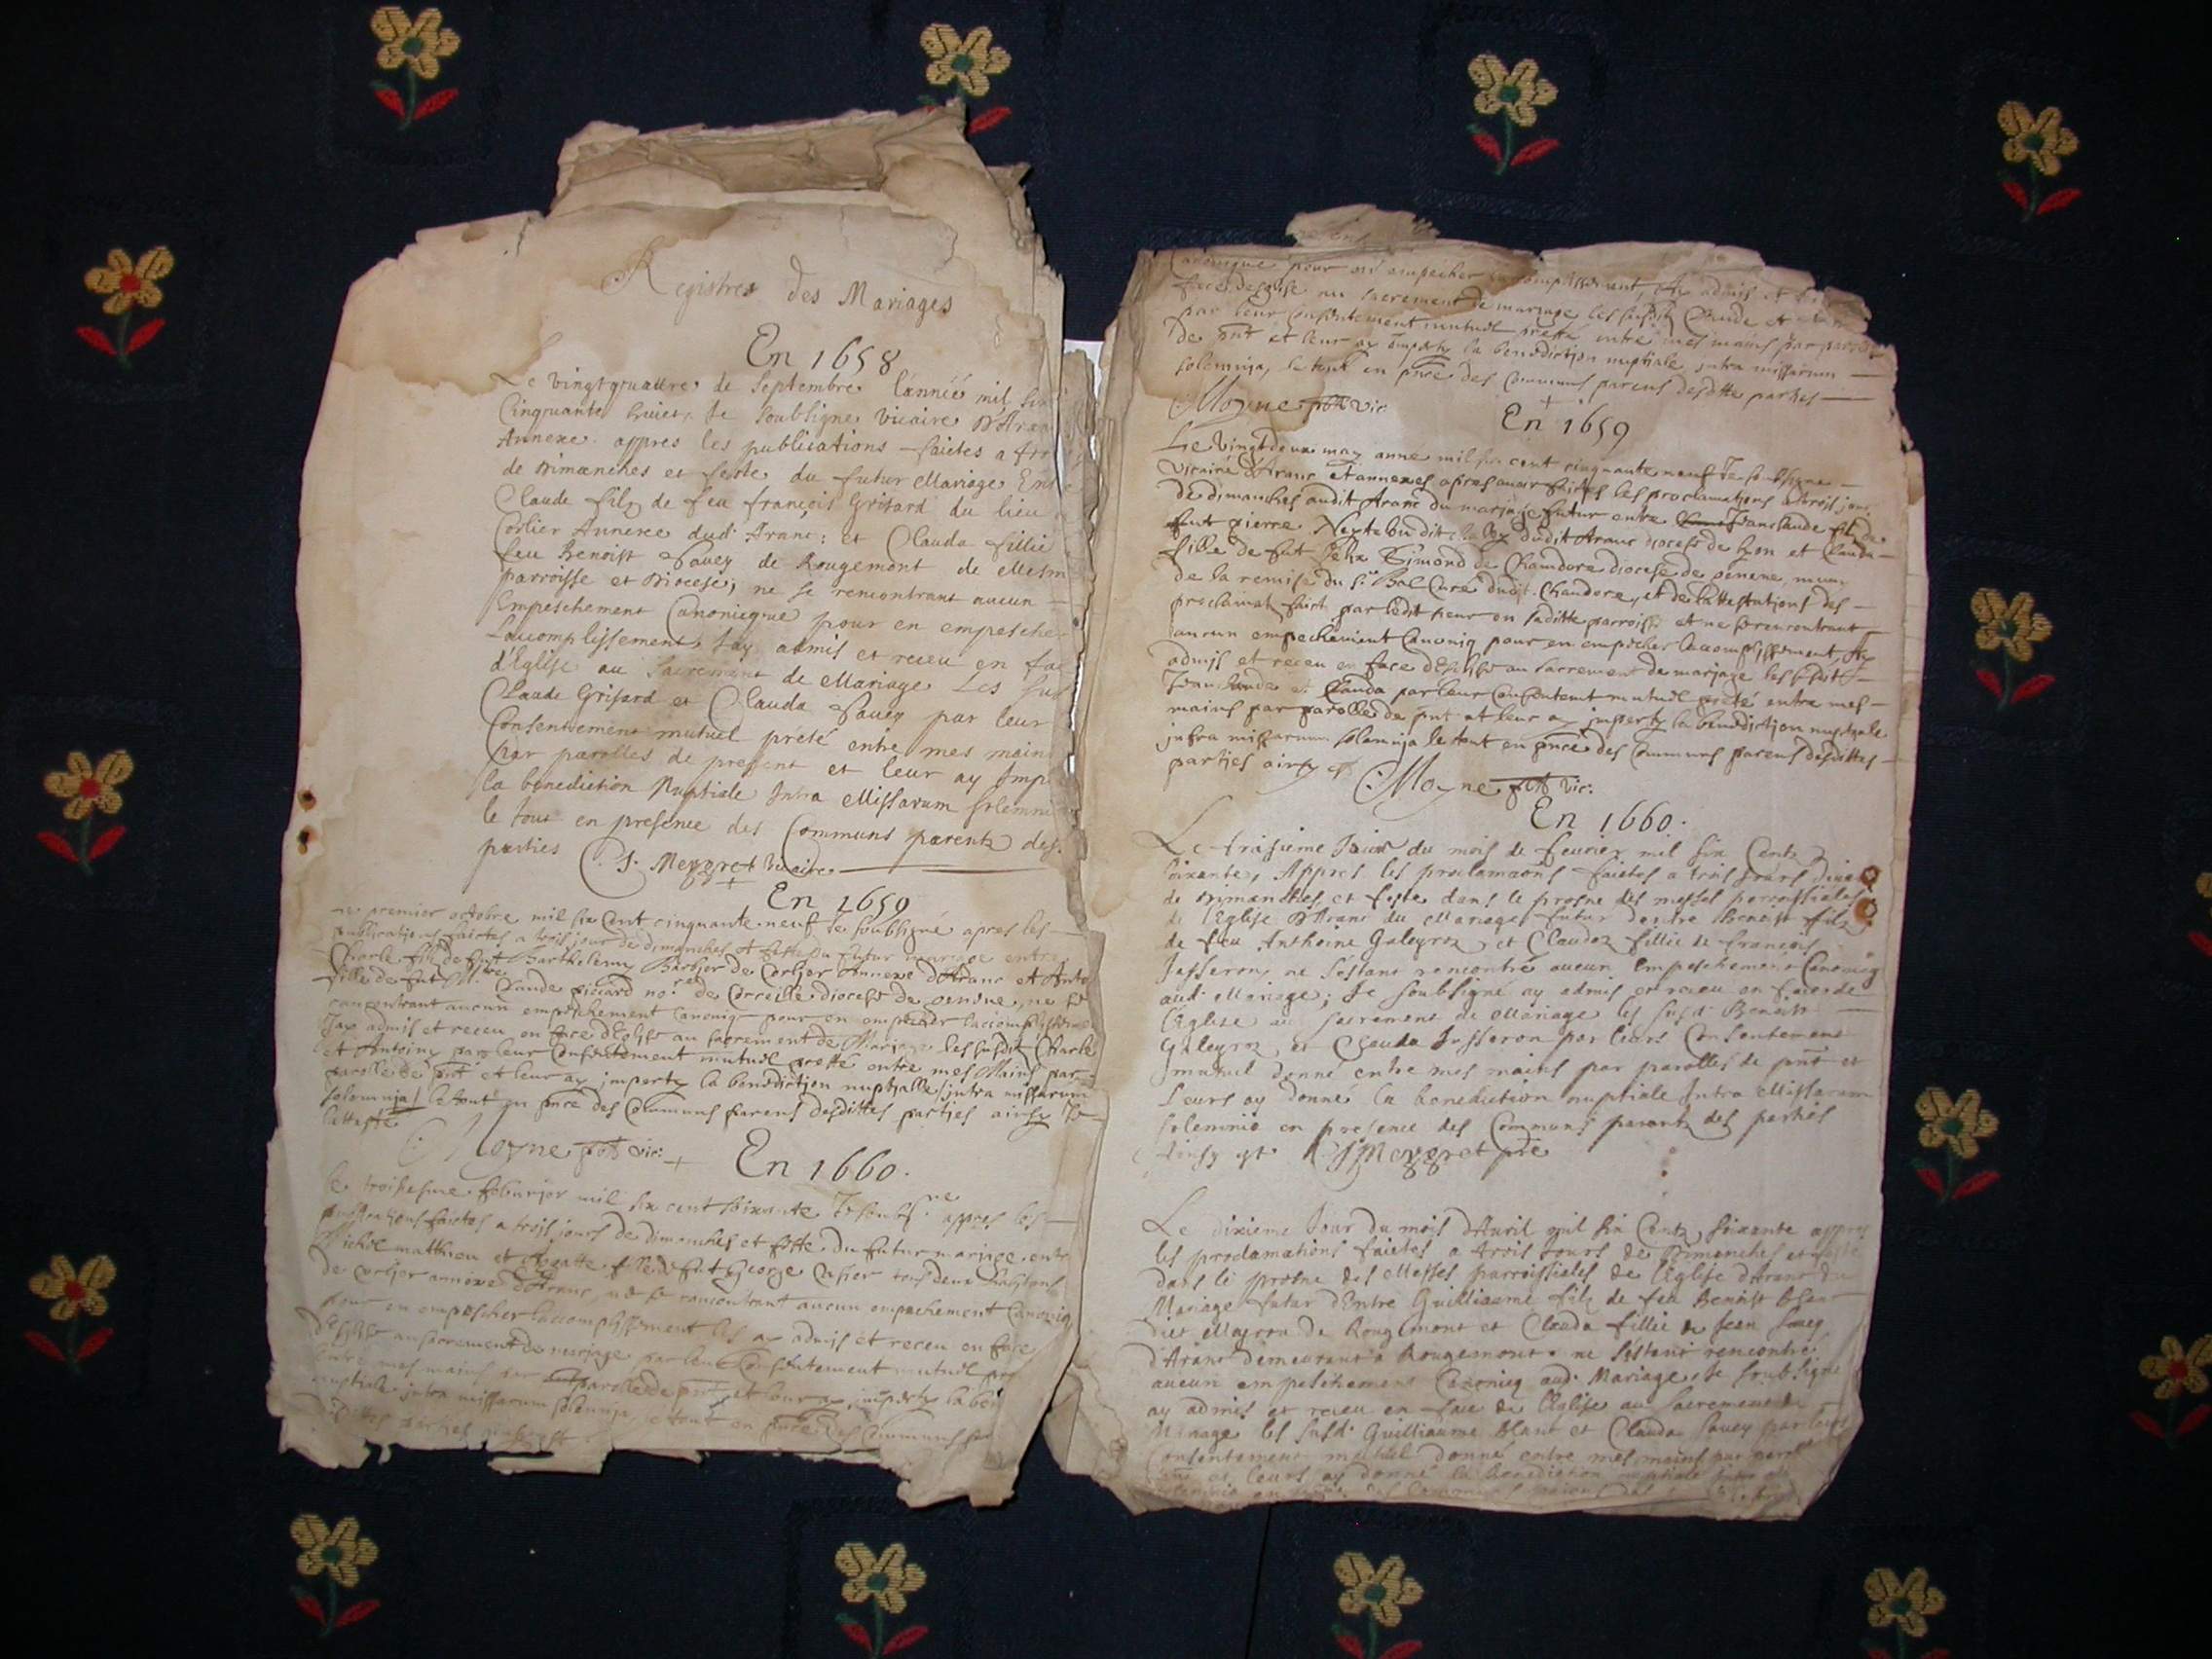 Registres des Mariages
En 1658
Le vingtquattre de Septembre l'année mil six
Cinquante huict, Je soubsigné vicaire D'Aran
Annexe appres les publications faictes a tro
de Dimanches et feste du futur Mariage Ent
Claude filz de feu françois Grisard du lieu
Corlier Annexe dud. Aranc: et Clauda fillie
feu Benoist Savey de Rougemont de mesm
parroisse et Diocese, ne se rencontrant aucun
Empeschement Canonicque pour en empesche
Laccomplissement, Jay admis et receu en fac
d'Eglise au Sacrement de Mariage Les sus
Claude Grisard et Clauda Savey par leur
Consentement mutuel preté entre mes main
par parolles de present et leur ay Imp
la benediction Nuptiale Intra Missarum solemni
le tout en presence des Communs parentz des.
parties J. Meygret vicaire
En 1659
Le premier octobre mil six Cent cinquante neuf Je soubsigné apres les
publications faictes a trois jour de dimanches et feste du futur mariage entre
Charle filz de fut Barthelemy Barbier de Corlier Annexe d'Aranc et Anto
fille de fut Mtre Claude picard nore de Corcelle diocese de geneve, ne se
rancontrant aucun empeschement Canoniq pour en empecher laccomplisseme
Jay admis et receu en face d'Eglise au sacrement de Mariage les susdit Charle
et Antoine par leur Consentement mutuel presté entre mes Mains par
parolle de pnt et leur ay imperty la benediction nuptialle intra missarum
solemnia, le tout en pnce des Communs parens desdittes parties ainsy Je
latteste
Moyne pbt vic:
En 1660.
le troisiesme febvrier mil six cent soixante Je soubsne appres les
publications faictes a trois jours de dimanches et feste du futur mariage ent
Michel matthieu et fille de fut George tous deux
de Corlier annexe d'Aranc, ne se rancontrant aucun empechement Canoniq
pour en empescher laccomplissement les ay admis et receu en face
d'Eglise au sacrement de mariage par leur Consentement mutuel
entre mes mains par parolle de pnt et leur ay imperty la ben
nuptiale intra missarum solemnia, le tout en pnce des Communs
parties
Canonique pour en empecher laccomplissement, Ay admis et
face deglise au sacrement de mariage les susdits Claude et
par leur Consentement mutuel presté entre mes mains par parolle
de pnt et leur ay imperty la benediction nuptiale intra missarum
solemnia, le tout en pnce des Communs parens desditte parties
Moyne pbt vic:
En 1659
Le vingt deux may anné mil six cent cinquante neuf Je soubsigne
vicaire d'Aranc et annexes apres avoir faictes les proclamations a trois jour
de dimanches audit Aranc du mariage futur entre Janclaude filz de
fut pierre dudit Aranc diocese de Lyon et Clauda
fille de fut Felix Simond de Chandore diocese de geneve, muny
de la remise du Sr Bal Curé dudit Chandore, et de lattestations des
proclamat faict par ledit sieur en saditte parroisse et ne se rencontrant
aucun empechement Canoniq pour en empecher laccomplissement, Ay
admis et receu en face d'Eglise au sacrement de mariage les sudit
Janclaude et Clauda par leur Consentemt mutuel presté entre mes
mains par parolle de pnt et leur ay imperty la benediction nuptiale
infra missarum solemnia le tout en pnce des Communs parens desdittes
parties ainsy
Moyne pbt vic:
En 1660.
Le troisieme Jour du mois de fevrier mil six Centz
soixante, Appres les proclamaons faictes a trois Jours
de Dimanches, et feste dans le prosne des messes parroissiales
de l'Eglise D'Aranc du Mariage futur dentre Benoist filz
de feu Anthoine Galeyroz, et Claudaz fillie de francois
Jesseron, ne s'estant rencontré aucun Empeschement Canoniq
aud. Mariage; Je soubsigné ay admis et receu en face de
l'Eglise au sacrement de Mariage les susd. Benoist
Galeyroz, et Clauda Jesseron par leurs Consentement
mutuel donné entre mes mains par parolles de pnt et
Leurs ay donné la benediction nuptiale Intra Missarum
solemnia en presence des Communs parentz des parties
Ainsy est J Meygret pre
Le dixieme Jour du mois d'Avril mil six Centz soixante appres
les proclamations faictes a trois Jours de Dimanches et feste
dans le prosne des Messes parroissiales de l'Eglise d'Aranc du
Mariage futur d'Entre Guilliaume filz de feu Benoist blanc
dict de Rougemont et Clauda fillie de Jean Savey
d'Aranc demeurant a Rougemont. ne s'estant rencontré
aucun empeschement Canoniq aud. Mariage, Je soubsigné
ay admis et receu en face de l'Eglise au sacrement de
Mariage les susd. Guilliaume blanc et Clauda Savey par leurs
Consentement mutuel donné entre mes mains par parol
et leurs ay donné la benediction nuptiale Intra
des Communs parens